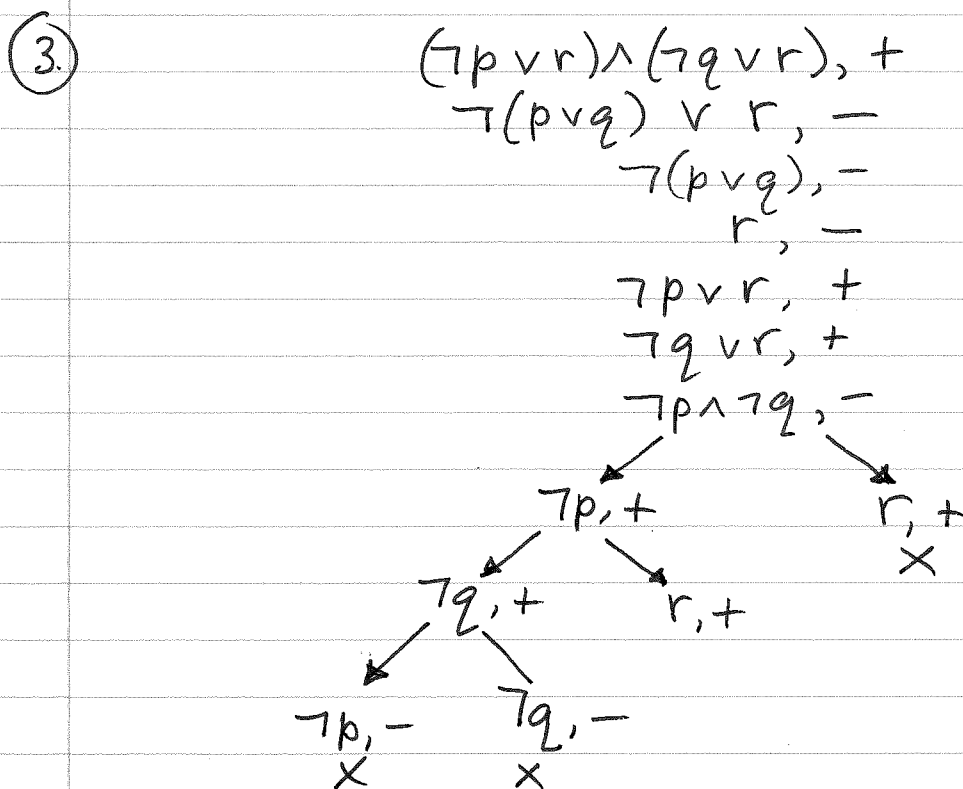 3.
(¬p ∨ r) ∧ (¬q ∨ r), +
¬(p ∨ q) ∨ r, −
¬(p ∨ q), −
r, −
¬p ∨ r, +
¬q ∨ r, +
¬p ∧ ¬q, −
¬p, + r, +
×
¬q, + r, +
¬p, − ¬q, −
× ×